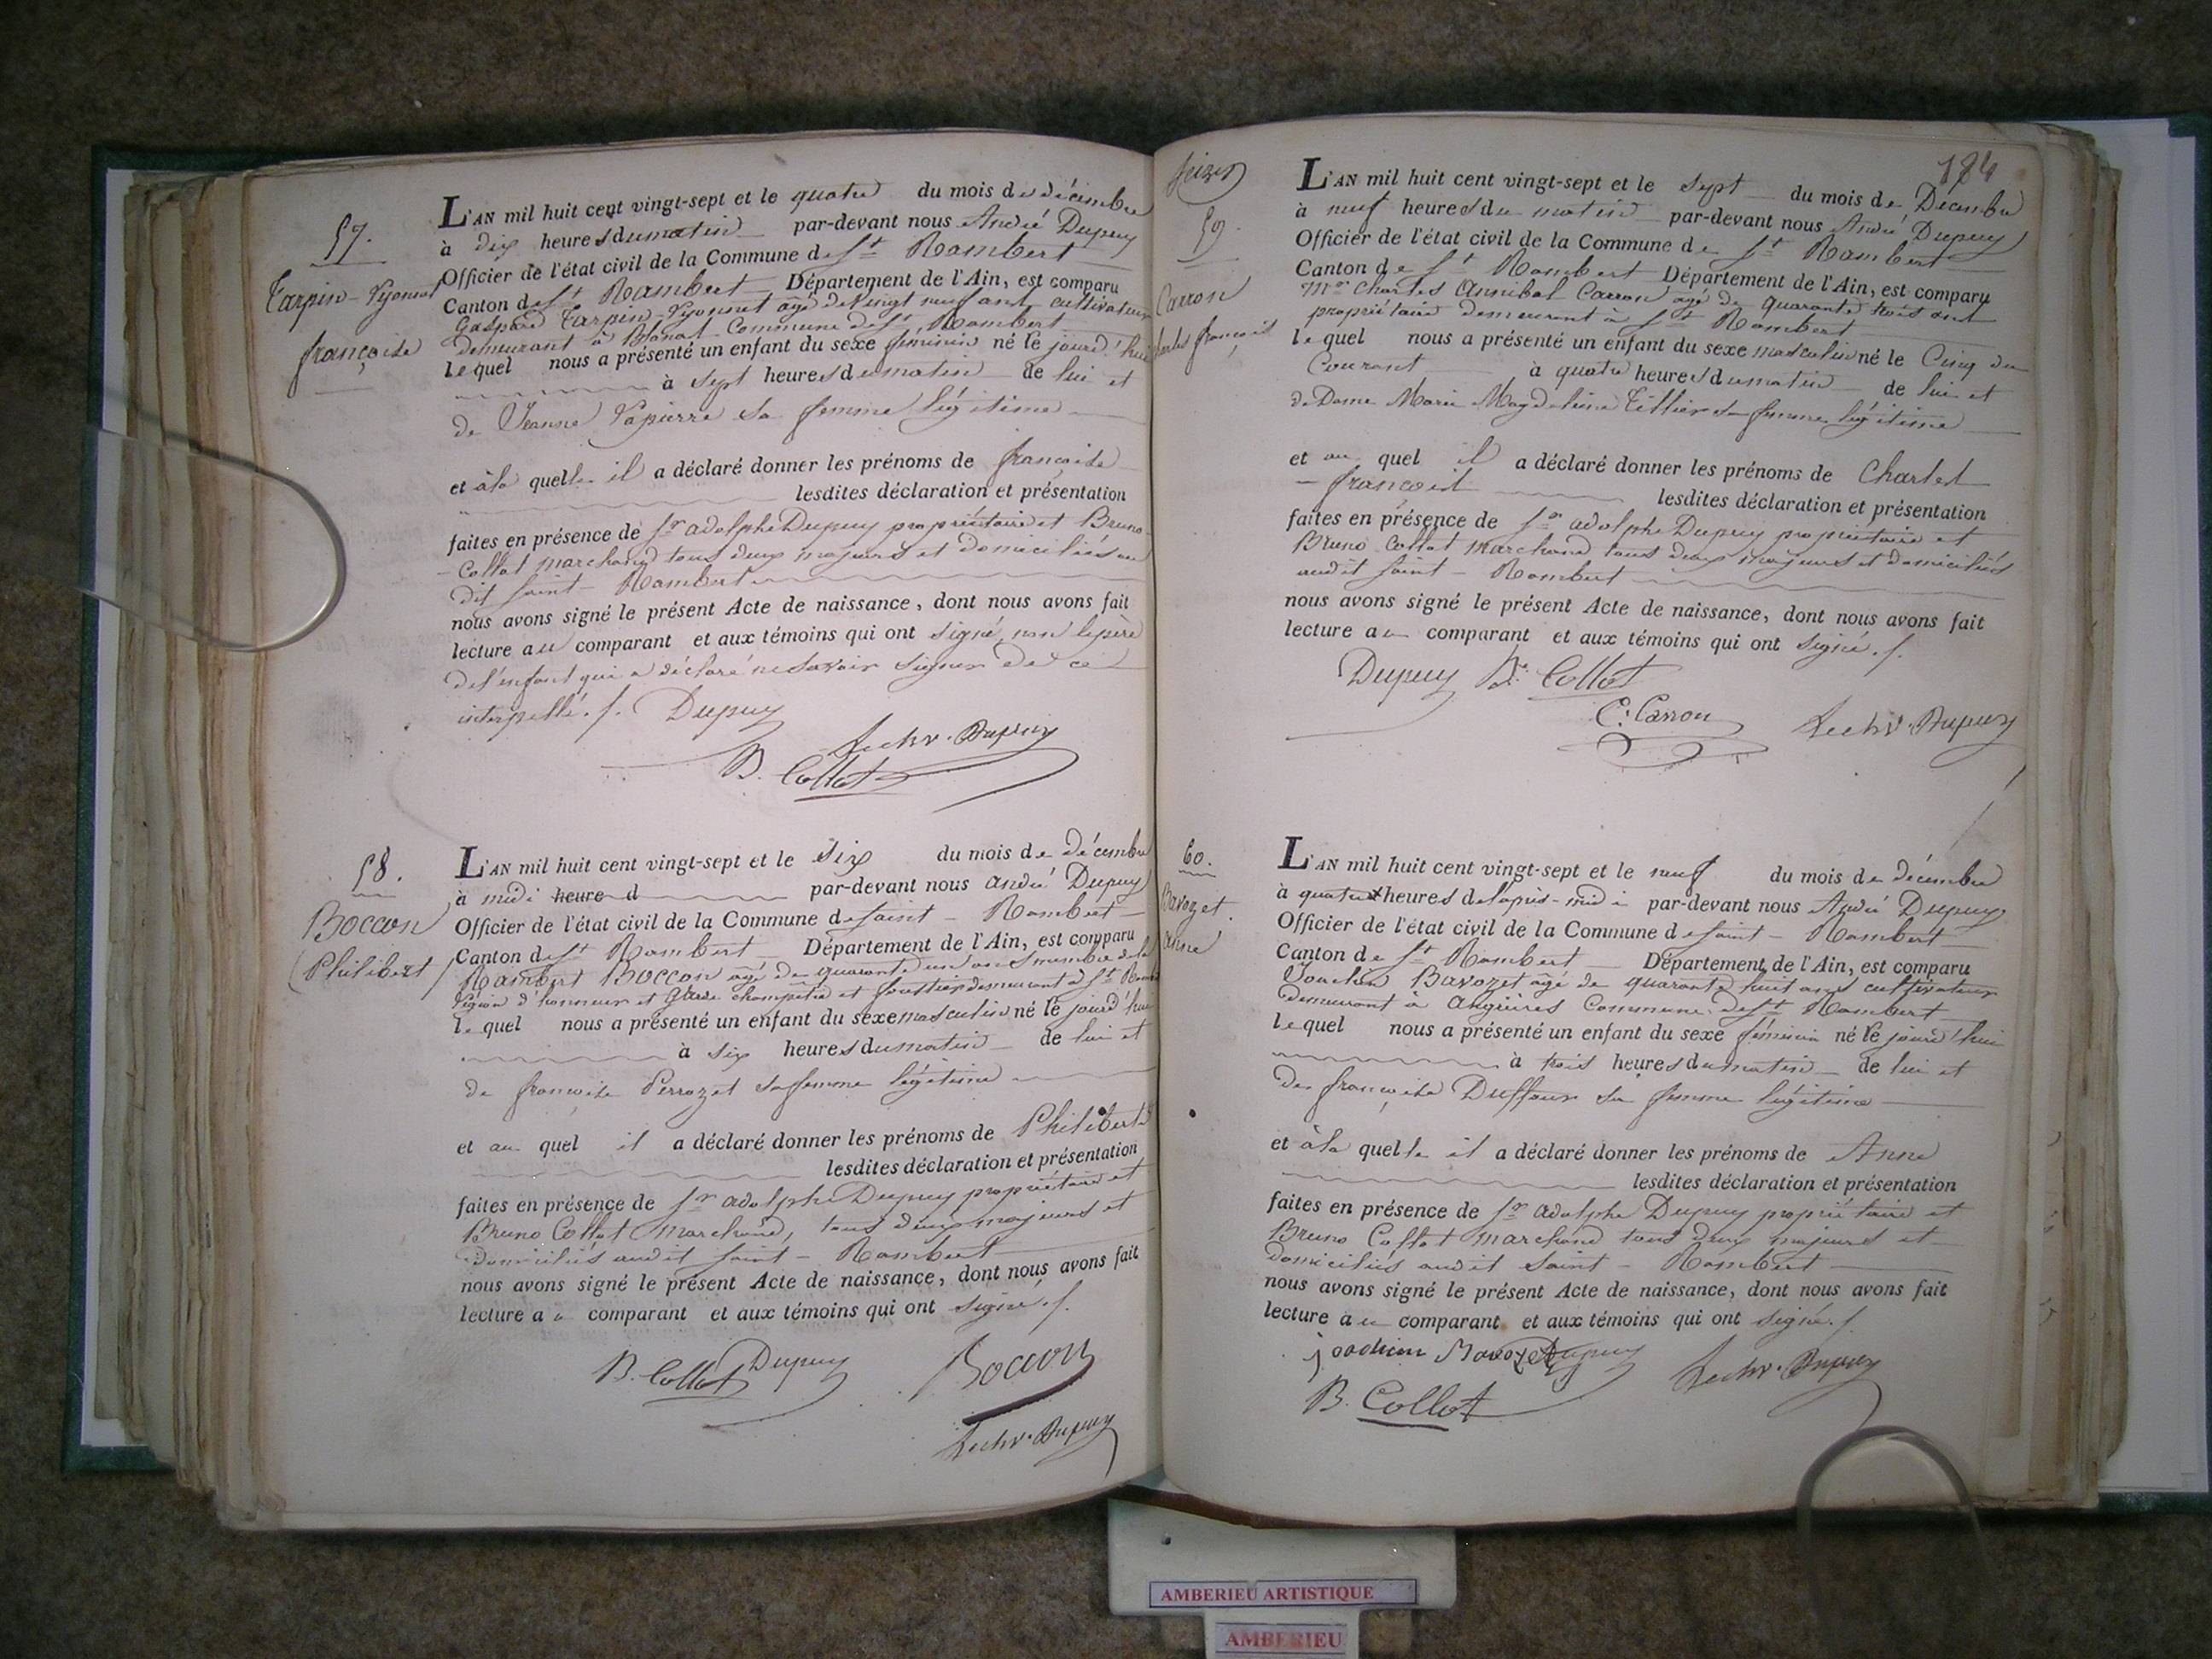 57.
Tarpin-Vyonnet
françoise
L'AN mil huit cent vingt-sept et le quatre du mois de décembre
à dix heures du matin par-devant nous André Dupuy
Officier de l'état civil de la Commune de St Rambert
Canton de St Rambert Département de l'Ain, est comparu
Gaspard Tarpin-Vyonnet âgé de vingt neuf ans cultivateur
demeurant à Blanat Commune de St Rambert
lequel nous a présenté un enfant du sexe féminin né le jourd'hui
à sept heures du matin de lui et
de Jeanne Lapierre sa femme légitime
et à la quelle il a déclaré donner les prénoms de françoise
lesdites déclaration et présentation
faites en présence de Sr adolphe Dupuy propriétaire et Bruno
Collot marchand tous deux majeurs et domiciliés au
dit saint-Rambert
nous avons signé le présent Acte de naissance, dont nous avons fait
lecture au comparant et aux témoins qui ont signé, non le père
de l'enfant qui a déclaré ne savoir signer de ce
interpellé ./. Dupuy
Dupuy
B. Collot
58.
Boccon
(Philibert)
L'AN mil huit cent vingt-sept et le six du mois de décembre
à midi heure d par-devant nous andré Dupuy
Officier de l'état civil de la Commune de saint-Rambert
Canton de St Rambert Département de l'Ain, est comparu
Rambert Boccon âgé de quarante un ans membre de la
Légion d'honneur et Garde champêtre et forestier demeurant à St Rambert
lequel nous a présenté un enfant du sexe masculin né le jourd'hui
à six heures du matin de lui et
de françoise Perrozet sa femme légitime
et au quel il a déclaré donner les prénoms de Philibert
lesdites déclaration et présentation
faites en présence de Sr adolphe Dupuy propriétaire et
Bruno Collot Marchand, tous deux majeurs et
domiciliés audit saint-Rambert
nous avons signé le présent Acte de naissance, dont nous avons fait
lecture au comparant et aux témoins qui ont signé ./.
B. Collot Dupuy Boccon
Dupuy
184
59.
Carron
Charles françois
L'AN mil huit cent vingt-sept et le sept du mois de Décembre
à neuf heures du matin par-devant nous André Dupuy
Officier de l'état civil de la Commune de St Rambert
Canton de St Rambert Département de l'Ain, est comparu
Mr Charles Annibal Carron âgé de quarante trois ans
propriétaire demeurant à St Rambert
lequel nous a présenté un enfant du sexe masculin né le Cinq du
Courant à quatre heures du matin de lui et
de Dame Marie Magdeleine Tillier sa femme légitime
et au quel il a déclaré donner les prénoms de Charles
françois lesdites déclaration et présentation
faites en présence de Sr adolphe Dupuy propriétaire et
Bruno Collot marchand tous deux majeurs et domiciliés
audit saint-Rambert
nous avons signé le présent Acte de naissance, dont nous avons fait
lecture au comparant et aux témoins qui ont signé ./.
Dupuy Collot
C. Carron Dupuy
60.
Bavozet.
Anne
L'AN mil huit cent vingt-sept et le neuf du mois de décembre
à quatre heures de l'après-midi par-devant nous André Dupuy
Officier de l'état civil de la Commune de saint-Rambert
Canton de St Rambert Département de l'Ain, est comparu
Joachim Bavozet âgé de quarante huit ans cultivateur
demeurant à angrières Commune de St Rambert
lequel nous a présenté un enfant du sexe féminin né le jourd'hui
à trois heures du matin de lui et
de françoise Duffour sa femme légitime
et à la quelle il a déclaré donner les prénoms de Anne
lesdites déclaration et présentation
faites en présence de Sr adolphe Dupuy propriétaire et
Bruno Collot marchand tous deux majeurs et
domiciliés audit saint-Rambert
nous avons signé le présent Acte de naissance, dont nous avons fait
lecture au comparant et aux témoins qui ont signé ./.
joachim Bavozet Dupuy Dupuy
B. Collot
AMBERIEU ARTISTIQUE
AMBERIEU